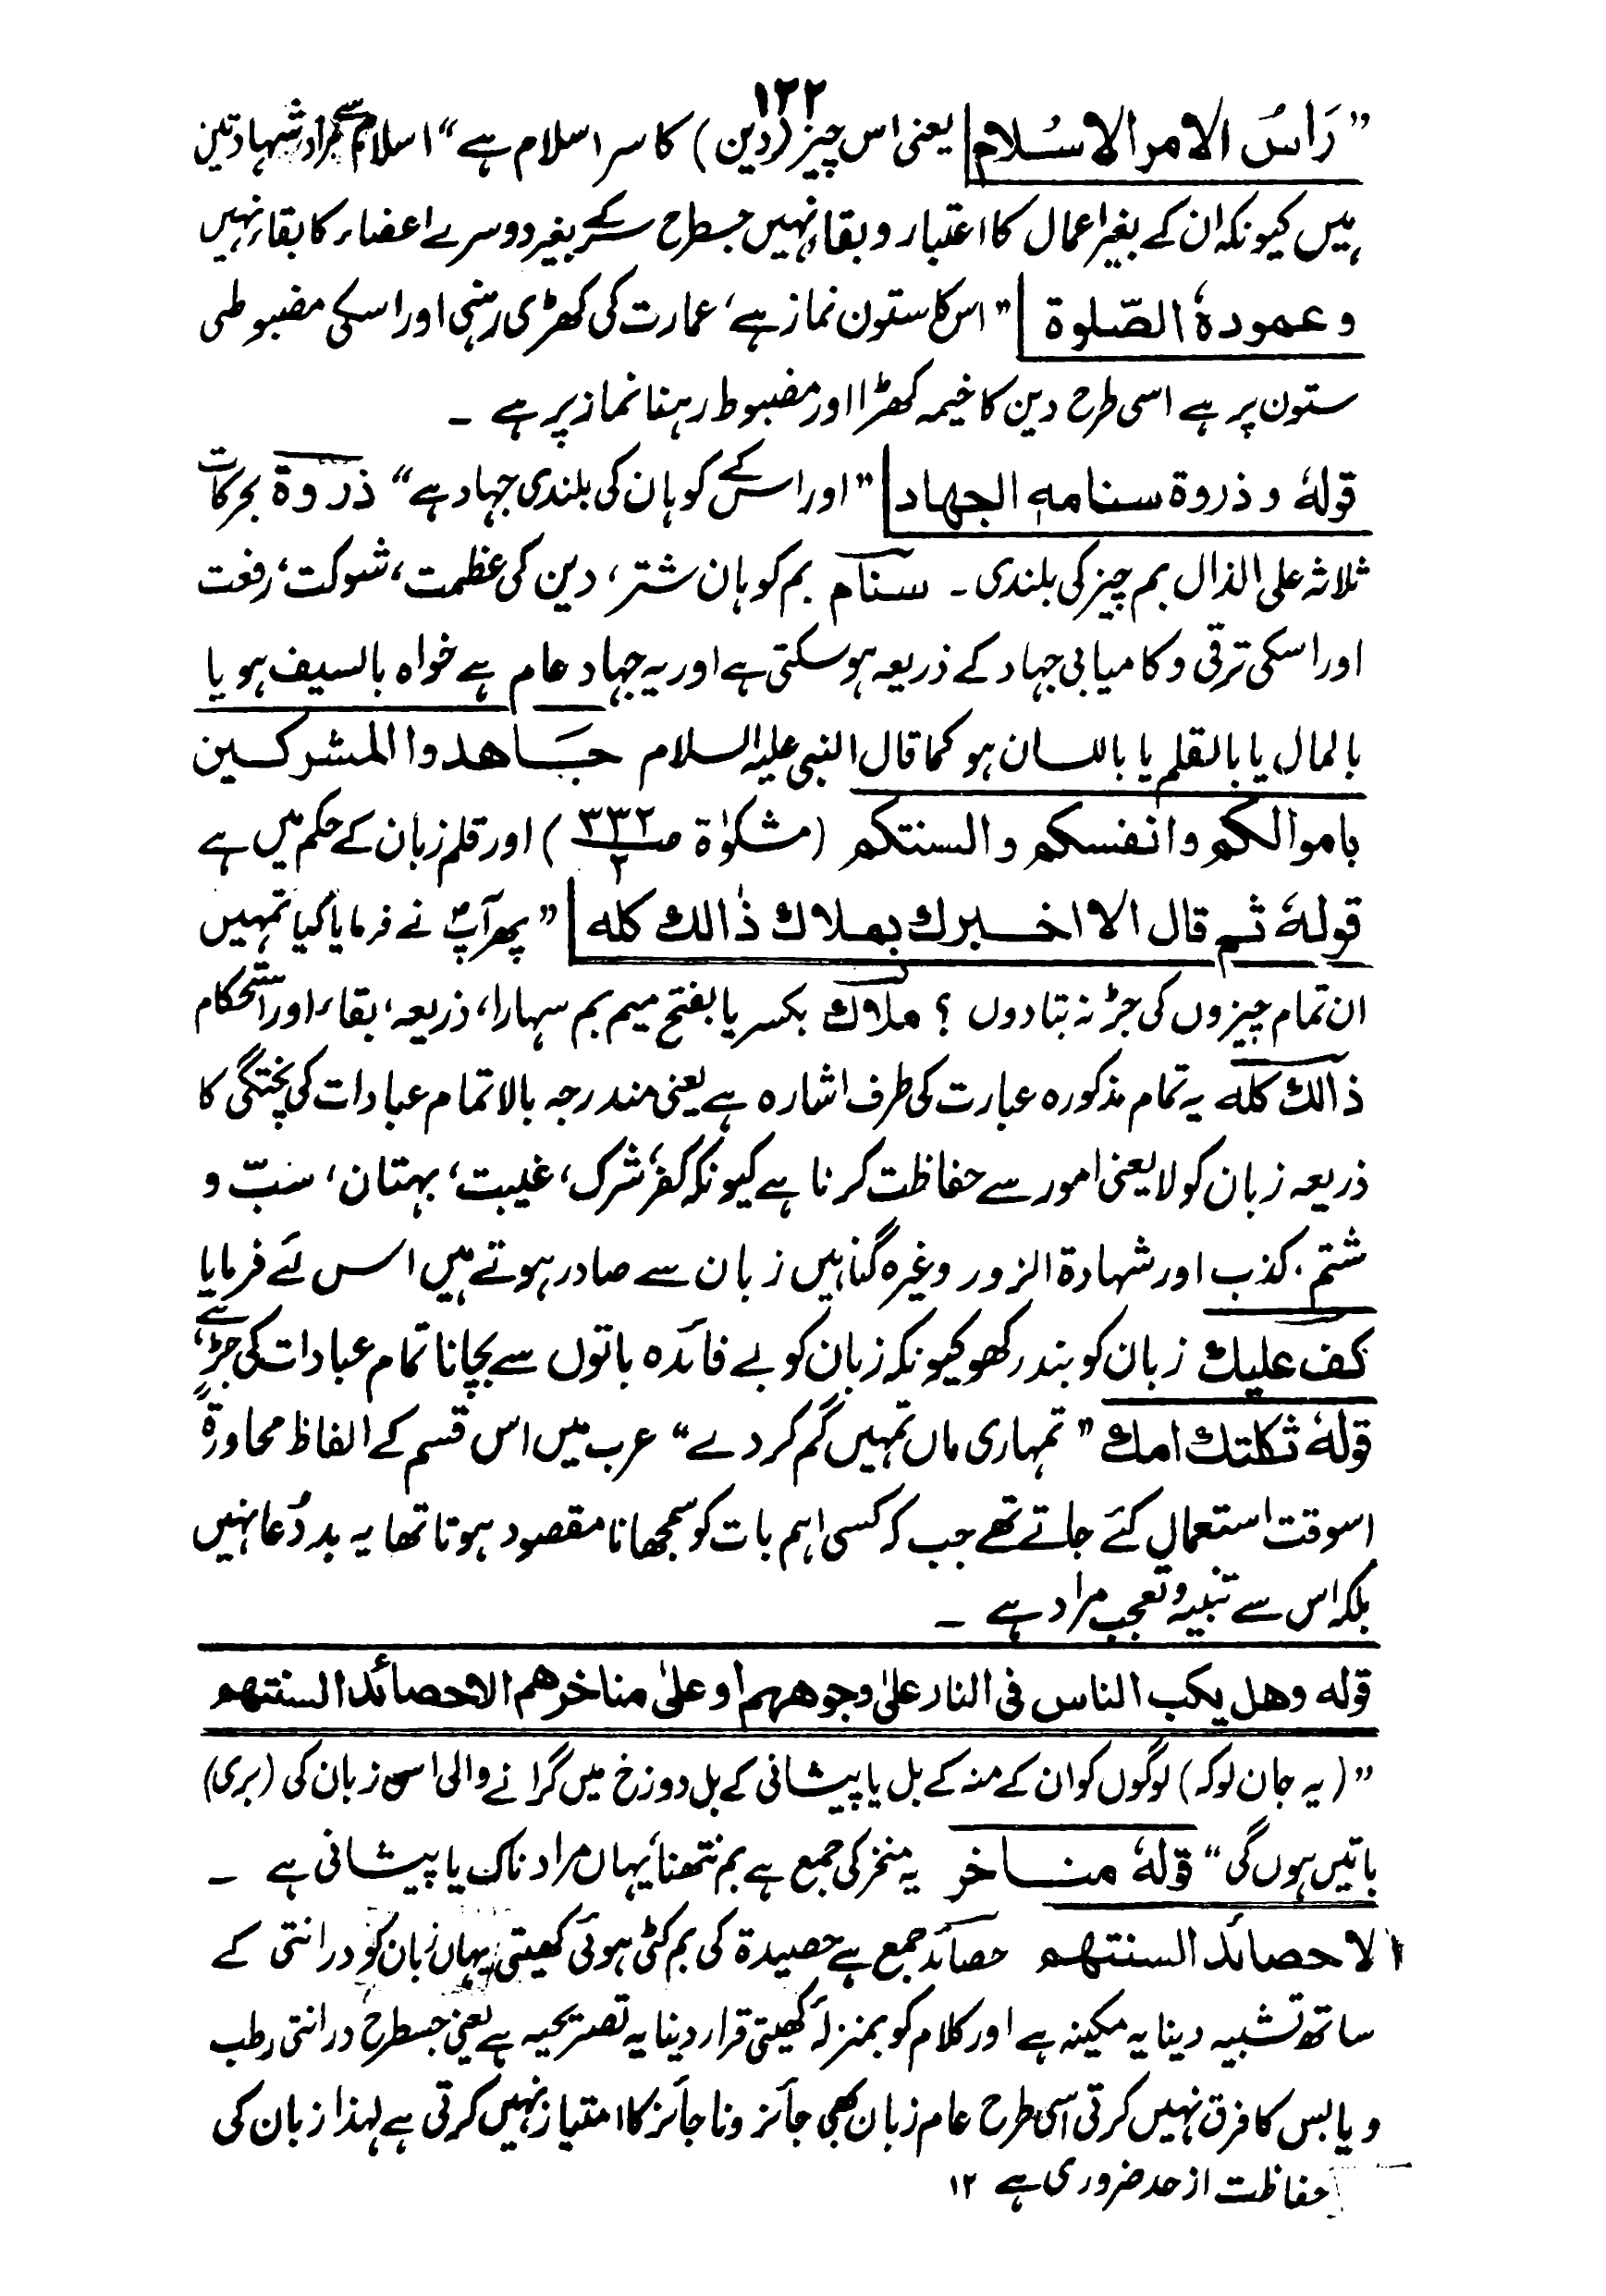 ۱۲۲
”رَاسُ الامر الاسُلام یعنی اس چیز (دین) کا سر اسلام ہے“ اسلام سے مراد شہادتین
ہیں کیونکہ ان کے بغیر اعمال کا اعتبار و بقاء نہیں جسطرح سر کے بغیر دوسرے اعضاء کا بقاء نہیں
و عمودہٗ الصّلوۃ ”اس کا ستون نماز ہے، عمارت کی کھڑی رہنی اور اسکی مضبوطی
ستون پر ہے اسی طرح دین کا خیمہ کھڑا اور مضبوط رہنا نماز پر ہے ۔
قولہٗ و ذروۃ سنامہٖ الجہاد ”اور اس کے کوہان کی بلندی جہاد ہے“ ذروۃ بحرکات
ثلاثہ علی الذال بم چیز کی بلندی ۔ سنام بم کوہان شتر، دین کی عظمت، شوکت، رفعت
اور اسکی ترقی و کامیابی جہاد کے ذریعہ ہوسکتی ہے اور یہ جہاد عام ہے خواہ بالسیف ہو یا
بالمال یا بالقلم یا باللسان ہو کما قال النبی علیہ السلام جَاهدوا المشركين
باموالكم وانفسكم والسنتكم (مشکوٰۃ صـ ۳۳۲/۲) اور قلم زبان کے حکم میں ہے
قولہٗ ثم قال الا اخبرك بملاك ذٰالك كله ”پھر آپؐ نے فرمایا کیا تمہیں
ان تمام چیزوں کی جڑ نہ بتادوں ؟ ملاك بکسر یا بفتح میم بم سہارا، ذریعہ، بقاء، اور استحکام
ذالك كله یہ تمام مذکورہ عبارت کی طرف اشارہ ہے یعنی مندرجہ بالا تمام عبادات کی پختگی کا
ذریعہ زبان کو لایعنی امور سے حفاظت کرنا ہے کیونکہ کفر، شرک، غیبت، بہتان، سبّ و
شتم، کذب اور شہادۃ الزور وغیرہ گناہیں زبان سے صادر ہوتے ہیں اس لئے فرمایا
كف عليك زبان کو بند رکھو کیونکہ زبان کو بے فائدہ باتوں سے بچانا تمام عبادات کی جڑ ہے،
قولہٗ ثكلتك امك ”تمہاری ماں تمہیں گم کردے“ عرب میں اس قسم کے الفاظ محاورۃً
اسوقت استعمال کئے جاتے تھے جب کہ کسی اہم بات کو سمجھانا مقصود ہوتا تھا یہ بد دُعا نہیں
بلکہ اس سے تنبیہ و تعجب مراد ہے ۔
قوله وهل يكب الناس فى النار علىٰ وجوههم او علىٰ مناخرهم الا حصائد السنتهم
”(یہ جان لو کہ) لوگوں کو ان کے منہ کے بل یا پیشانی کے بل دوزخ میں گرانے والی اسی زبان کی (بری)
باتیں ہوں گی“ قولہٗ مناخر یہ منخر کی جمع ہے بم نتھنا، یہاں مراد ناک یا پیشانی ہے ۔
الا حصائد السنتهم حصائد جمع ہے حصیدۃ کی بم کٹی ہوئی کھیتی، یہاں زبان کو درانتی کے
ساتھ تشبیہ دینا یہ مکینہ ہے اور کلام کو بمنزلہ کھیتی قرار دینا یہ تصریحیہ ہے یعنی جسطرح درانتی رطب
و یابس کا فرق نہیں کرتی اسی طرح عام زبان بھی جائز و ناجائز کا امتیاز نہیں کرتی ہے لہذا زبان کی
حفاظت از حد ضروری ہے ۱۲